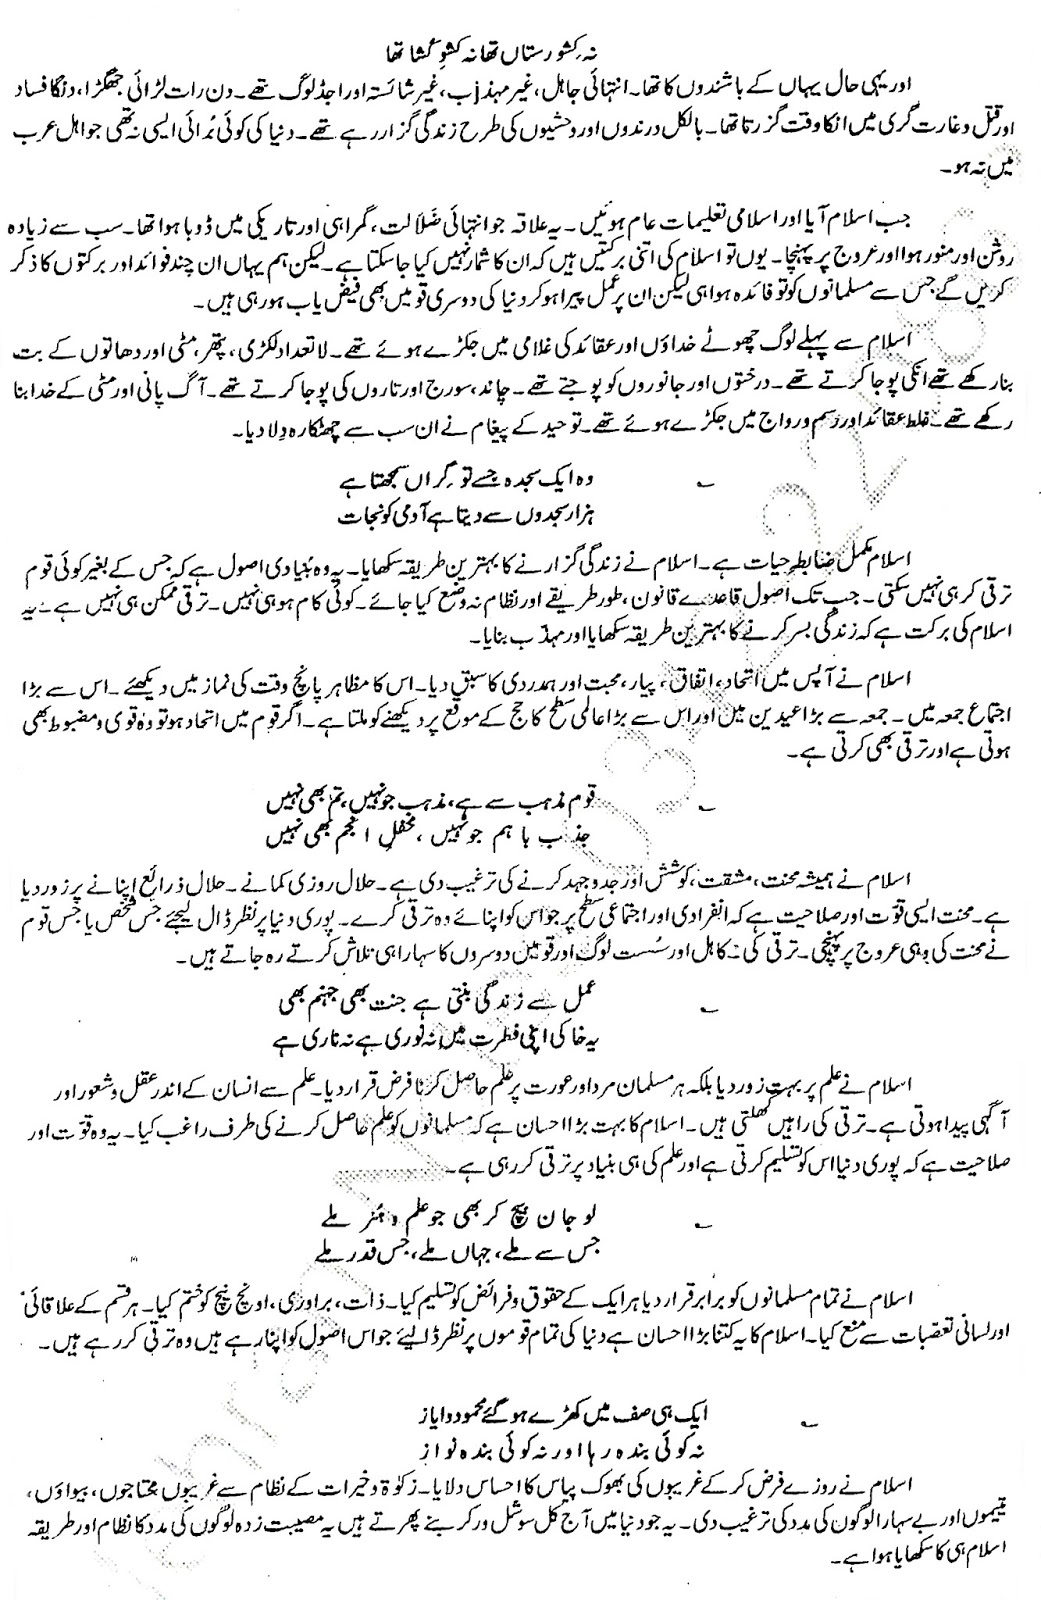 نہ کشورستاں تھا نہ کشور کُشا تھا
اور یہی حال یہاں کے باشندوں کا تھا۔ انتہائی جاہل، غیر مہذب، غیر شائستہ اور اجڈ لوگ تھے۔ دن رات لڑائی جھگڑا، دنگا فساد
اور قتل و غارت گری میں انکا وقت گزرتا تھا۔ بالکل درندوں اور وحشیوں کی طرح زندگی گزار رہے تھے۔ دنیا کی کوئی بُرائی ایسی نہ تھی جو اہل عرب
میں نہ ہو۔
جب اسلام آیا اور اسلامی تعلیمات عام ہوئیں۔ یہ علاقہ جو انتہائی ضلالت، گمراہی اور تاریکی میں ڈوبا ہوا تھا۔ سب سے زیادہ
روشن اور منور ہوا اور عروج پر پہنچا۔ یوں تو اسلام کی اتنی برکتیں ہیں کہ ان کا شمار نہیں کیا جا سکتا ہے۔ لیکن ہم یہاں ان چند فوائد اور برکتوں کا ذکر
کریں گے جس سے مسلمانوں کو تو فائدہ ہوا ہی لیکن ان پر عمل پیرا ہو کر دنیا کی دوسری قومیں بھی فیض یاب ہو رہی ہیں۔
اسلام سے پہلے لوگ چھوٹے خداؤں اور عقائد کی غلامی میں جکڑے ہوئے تھے۔ لاتعداد لکڑی، پتھر، مٹی اور دھاتوں کے بت
بنا رکھے تھے انکی پوجا کرتے تھے۔ درختوں اور جانوروں کو پوجتے تھے۔ چاند، سورج اور تاروں کی پوجا کرتے تھے۔ آگ پانی اور مٹی کے خدا بنا
رکھے تھے۔ غلط عقائد اور رسم و رواج میں جکڑے ہوئے تھے۔ توحید کے پیغام نے ان سب سے چھٹکارہ دِلا دیا۔
وہ ایک سجدہ جسے تو گِراں سمجھتا ہے
ہزار سجدوں سے دیتا ہے آدمی کو نجات
اسلام مکمل ضابطہ حیات ہے۔ اسلام نے زندگی گزارنے کا بہترین طریقہ سکھایا۔ یہ وہ بنیادی اصول ہے کہ جس کے بغیر کوئی قوم
ترقی کر ہی نہیں سکتی۔ جب تک اصول قاعدے قانون، طور طریقے اور نظام نہ وضع کیا جائے۔ کوئی کام ہو ہی نہیں۔ ترقی ممکن ہی نہیں ہے۔ یہ
اسلام کی برکت ہے کہ زندگی بسر کرنے کا بہترین طریقہ سکھایا اور مہذب بنایا۔
اسلام نے آپس میں اتحاد، اتفاق، پیار، محبت اور ہمدردی کا سبق دیا۔ اس کا مظاہر پانچ وقت کی نماز میں دیکھئے۔ اس سے بڑا
اجتماع جمعہ میں۔ جمعہ سے بڑا عیدین میں اور اس سے بڑا عالمی سطح کا حج کے موقع پر دیکھنے کو ملتا ہے۔ اگر قوم میں اتحاد ہو تو وہ قوی و مضبوط بھی
ہوتی ہے اور ترقی بھی کرتی ہے۔
قوم مذہب سے ہے، مذہب جو نہیں، تم بھی نہیں
جذب باہم جو نہیں، محفلِ انجم بھی نہیں
اسلام نے ہمیشہ محنت، مشقت، کوشش اور جدوجہد کرنے کی ترغیب دی ہے۔ حلال روزی کمانے۔ حلال ذرائع اپنانے پر زور دیا
ہے۔ محنت ایسی قوت اور صلاحیت ہے کہ انفرادی اور اجتماعی سطح پر جو اس کو اپنائے وہ ترقی کرے۔ پوری دنیا پر نظر ڈال لیجئے جس شخص یا جس قوم
نے محنت کی وہی عروج پر پہنچی۔ ترقی کی۔ کاہل اور سُست لوگ اور قومیں دوسروں کا سہارا ہی تلاش کرتے رہ جاتے ہیں۔
عمل سے زندگی بنتی ہے جنت بھی جہنم بھی
یہ خاکی اپنی فطرت میں نہ نوری ہے نہ ناری ہے
اسلام نے علم پر بہت زور دیا بلکہ ہر مسلمان مرد اور عورت پر علم حاصل کرنا فرض قرار دیا۔ علم سے انسان کے اندر عقل و شعور اور
آگہی پیدا ہوتی ہے۔ ترقی کی راہیں کھلتی ہیں۔ اسلام کا بہت بڑا احسان ہے کہ مسلمانوں کو علم حاصل کرنے کی طرف راغب کیا۔ یہ وہ قوت اور
صلاحیت ہے کہ پوری دنیا اس کو تسلیم کرتی ہے اور علم کی ہی بنیاد پر ترقی کر رہی ہے۔
لو جان بیچ کر بھی جو علم و ہنر ملے
جس سے ملے، جہاں ملے، جس قدر ملے
اسلام نے تمام مسلمانوں کو برابر قرار دیا ہر ایک کے حقوق و فرائض کو تسلیم کیا۔ ذات، براوری، اونچ نیچ کو ختم کیا۔ ہر قسم کے علاقائی
اور لسانی تعصبات سے منع کیا۔ اسلام کا یہ کتنا بڑا احسان ہے دنیا کی تمام قوموں پر نظر ڈالیئے جو اس اصول کو اپنا رہے ہیں وہ ترقی کر رہے ہیں۔
ایک ہی صف میں کھڑے ہو گئے محمود و ایاز
نہ کوئی بندہ رہا اور نہ کوئی بندہ نواز
اسلام نے روزے فرض کر کے غریبوں کی بھوک پیاس کا احساس دلایا۔ زکوٰۃ و خیرات کے نظام سے غریبوں محتاجوں، بیواؤں،
یتیموں اور بے سہارا لوگوں کی مدد کی ترغیب دی۔ یہ جو دنیا میں آج کل سوشل ورکر بنے پھرتے ہیں یہ مصیبت زدہ لوگوں کی مدد کا نظام اور طریقہ
اسلام ہی کا سکھایا ہوا ہے۔